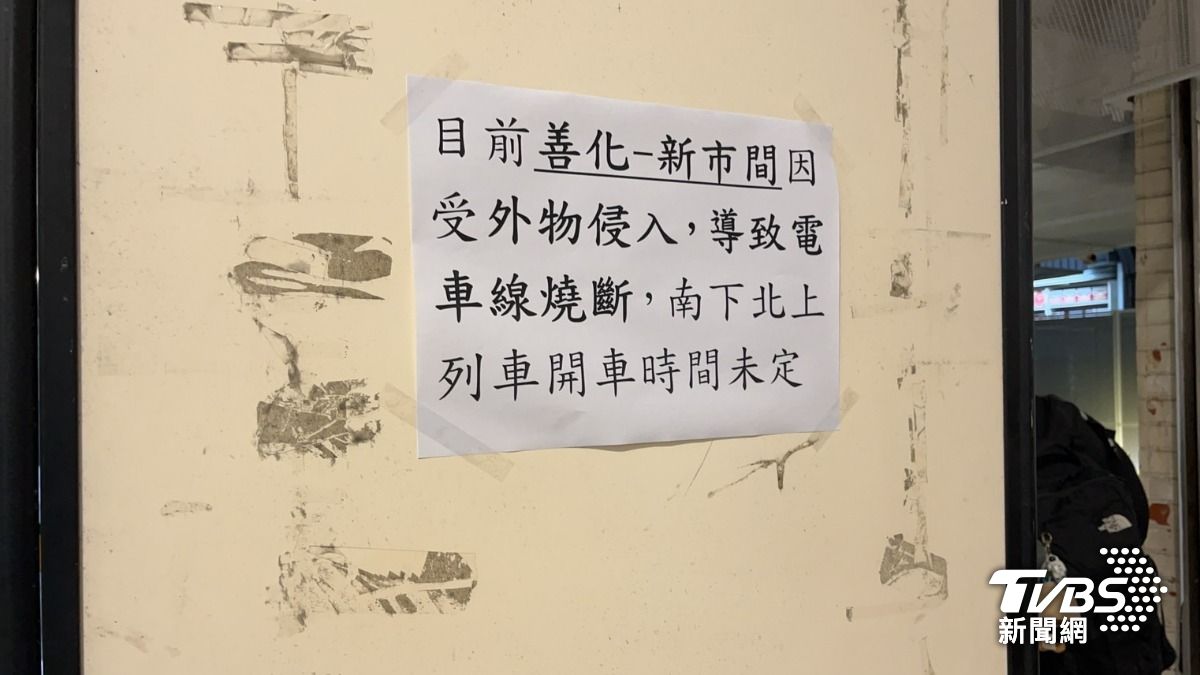 目前善化-新市間因
受外物侵入，導致電
車線燒斷，南下北上
列車開車時間未定
TVBS
新聞網